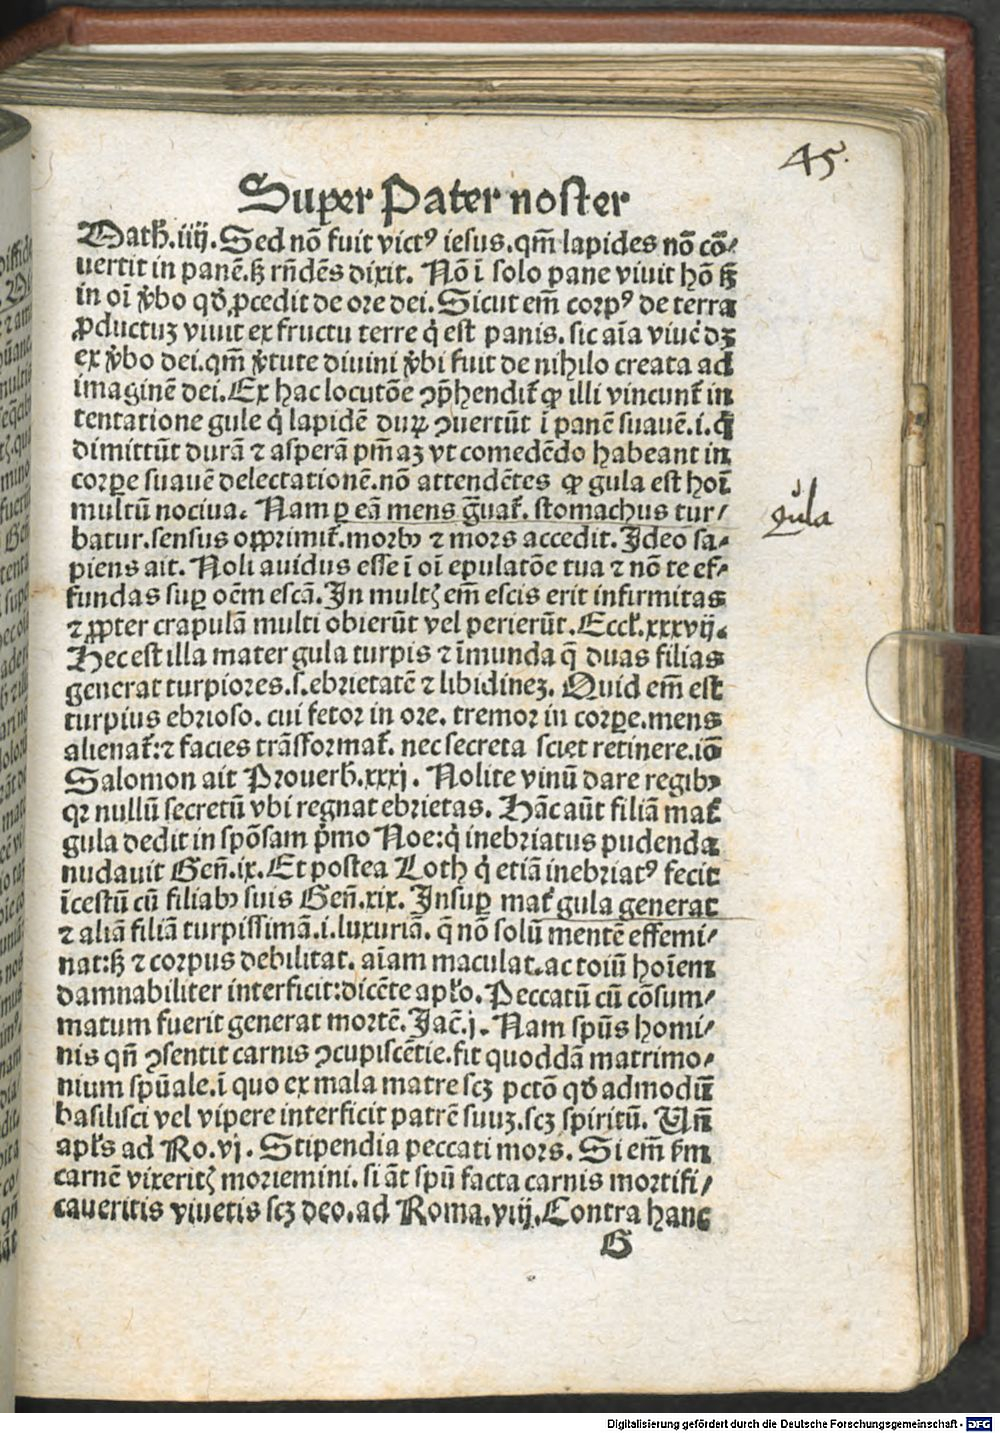 45.
Super Pater noster
Math̄.iiij. Sed nō fuit victꝰ iesus.qm̄ lapides nō cō⸗
uertit in panē.ſꝫ rn̄dēs dixit. Nō ī solo pane viuit hō ſꝫ
in oī v̄bo qd̓ ꝓcedit de ore dei. Sicut em̄ corpꝰ de terra
ꝓductuꝫ viuit ex fructu terre q̇ est panis. sic aīa viue̓ dꝫ
ex v̄bo dei.qm̄ v̄tute diuini v̄bi fuit de nihilo creata ad
imaginē dei. Ex hac locutōe ꝯp̄hendit̄ ꝙ illi vincunt̄ in
tentatione gule q̇ lapidē duꝝ ꝯuertūt ī panē suauē.i.q̇
dimittūt durā ⁊ asperā pm̄aꝫ vt comedēdo habeant in
corꝑe suauē delectationē.nō attendētes ꝙ gula est hoī
multū nociua. Nam ꝑ eā mens g̃uat̄. stomachus tur⸗
batur.sensus opprimit̄.morbꝰ ⁊ mors accedit. Ideo sa⸗
piens ait. Noli auidus esse ī oī epulatōe tua ⁊ nō te ef⸗
fundas suꝑ oēm escā. In multꝭ em̄ escis erit infirmitas
⁊ ꝓpter crapulā multi obierūt vel perierūt. Eccl̄.xxxvij.
Hec est illa mater gula turpis ⁊ īmunda q̄ duas filias
generat turpiores.s.ebrietatē ⁊ libidineꝫ. Quid em̄ est
turpius ebrioso. cui fetor in ore. tremor in corꝑe.mens
alienat̄:⁊ facies trāsformat̄. nec secreta sciet retinere.iō
Salomon ait Prouerb̄.xxxj. Nolite vinū dare regibꝰ
qꝛ nullū secretū vbi regnat ebrietas. Hāc aūt filiā mat̄
gula dedit in spōsam p̄mo Noe:q̇ inebriatus pudenda
nudauit Gen̄.ix. Et postea Loth q̇ etiā inebriatꝰ fecit
īcestū cū filiabꝰ suis Gen̄.xix. Insuꝑ mat̄ gula generat
⁊ aliā filiā turpissimā.i.luxuriā. q̄ nō solū mentē effemi⸗
nat:ſꝫ ⁊ corpus debilitat. aīam maculat.ac totū hoīem
damnabiliter interficit:dicēte apl̄o. Peccatū cū cōsum⸗
matum fuerit generat mortē. Jac̄.j. Nam spūs homi⸗
nis qn̄ ꝯsentit carnis ꝯcupiscētie.fit quoddā matrimo⸗
nium spūale.ī quo ex mala matre scꝫ pctō qd̓admodū
basilisci vel vipere interficit patrē suuꝫ.scꝫ spiritū. Vn̄
apl̄s ad Ro.vj. Stipendia peccati mors. Si em̄ ẜm
carnē vixeritꝭ moriemini. si āt spū facta carnis mortifi⸗
caueritis viuetis scꝫ deo.ad Roma.viij. Contra hanc
G
gula
Digitalisierung gefördert durch die Deutsche Forschungsgemeinschaft - DFG